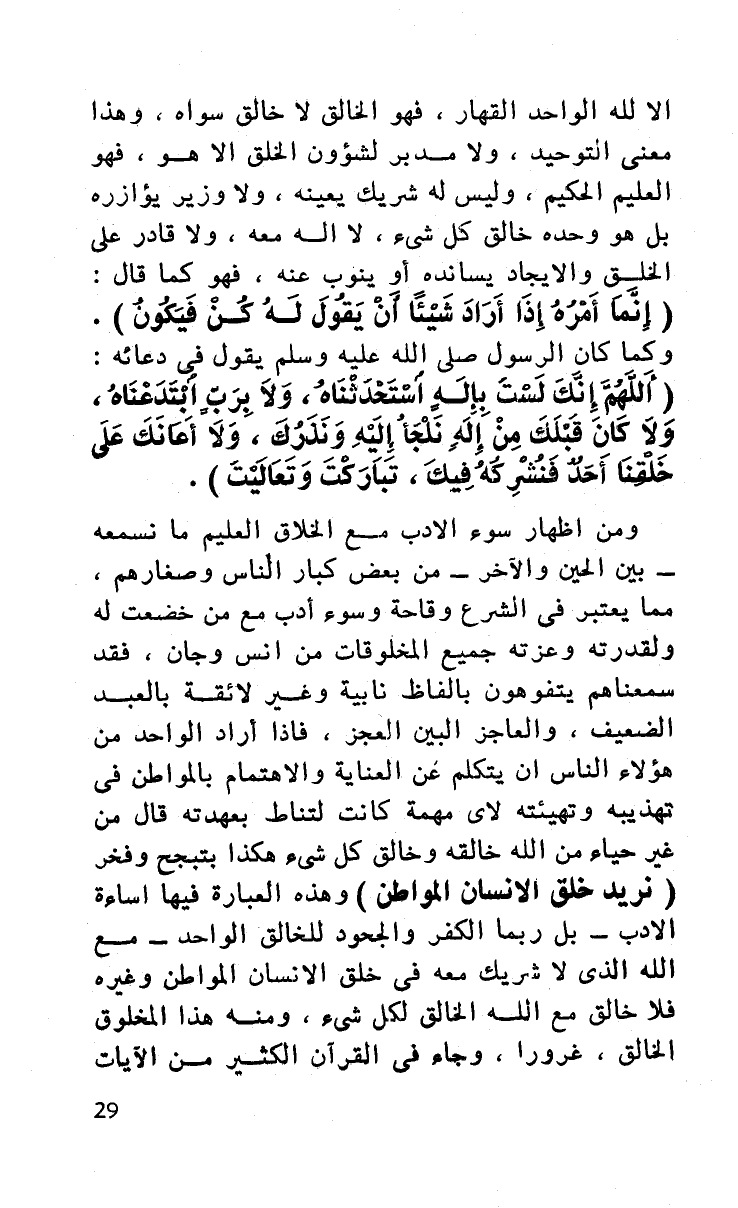 الا لله الواحد القهار ، فهو الخالق لا خالق سواه ، وهذا
معنى التوحيد ، ولا مـــدبر لشؤون الخلق الا هـــو ، فهو
العليم الحكيم ، وليس له شريك يعينه ، ولا وزير يؤازره
بل هو وحده خالق كل شىء ، لا الـــه معه ، ولا قادر على
الخلـــق والايجاد يسانده أو ينوب عنه ، فهو كما قال :
( إِنَّمَا أَمْرُهُ إِذَا أَرَادَ شَيْئًا أَنْ يَقُولَ لَـــهُ كُـــنْ فَيَكُونُ ) .
وكما كان الرسول صلى الله عليه وسلم يقول فى دعائه :
( اَللَّهُمَّ إِنَّكَ لَسْتَ بِإِلَـــهٍ اُسْتَحْدَثْنَاهُ ، وَلَا بِرَبٍّ اُبْتَدَعْنَاهُ ،
وَلَا كَانَ قَبْلَكَ مِنْ إِلَهٍ نَلْجَأُ إِلَيْهِ وَنَذَرُكَ ، وَلَا أَعَانَكَ عَلَى
خَلْقِنَا أَحَدٌ فَنُشْرِكَهُ فِيكَ ، تَبَارَكْتَ وَتَعَالَيْتَ ) .
ومن اظهار سوء الادب مـــع الخلاق العليم ما نسمعه
ـ بين الحين والآخر ـ من بعض كبار الناس وصغارهم ،
مما يعتبر فى الشرع وقاحة وسوء أدب مع من خضعت له
ولقدرته وعزته جميع المخلوقات من انس وجان ، فقد
سمعناهم يتفوهون بالفاظ نابية وغـــير لائقـــة بالعبـــد
الضعيف ، والعاجز البين العجز ، فاذا أراد الواحد من
هؤلاء الناس ان يتكلم عن العناية والاهتمام بالمواطن فى
تهذيبه وتهيئته لاى مهمة كانت لتناط بعهدته قال من
غير حياء من الله خالقه وخالق كل شىء هكذا بتبجح وفخر
( نريد خلق الانسان المواطن ) وهذه العبارة فيها اساءة
الادب ـ بل ربما الكفر والجحود للخالق الواحد ـ مـــع
الله الذى لا شريك معه فى خلق الانسان المواطن وغيره
فلا خالق مع اللـــه الخالق لكل شىء ، ومنـــه هذا المخلوق
الخالق ، غرورا ، وجاء فى القرآن الكثـــير مـــن الآيات
29